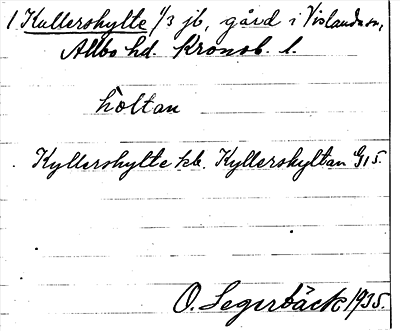 1 Kullershylte 1/3 jb, gård i Vislanda sn,
Allbo hd. Kronob. l.
holtan
Kyllershylte kb. Kyllershyltan G15.
O. Segerbäck 1935.